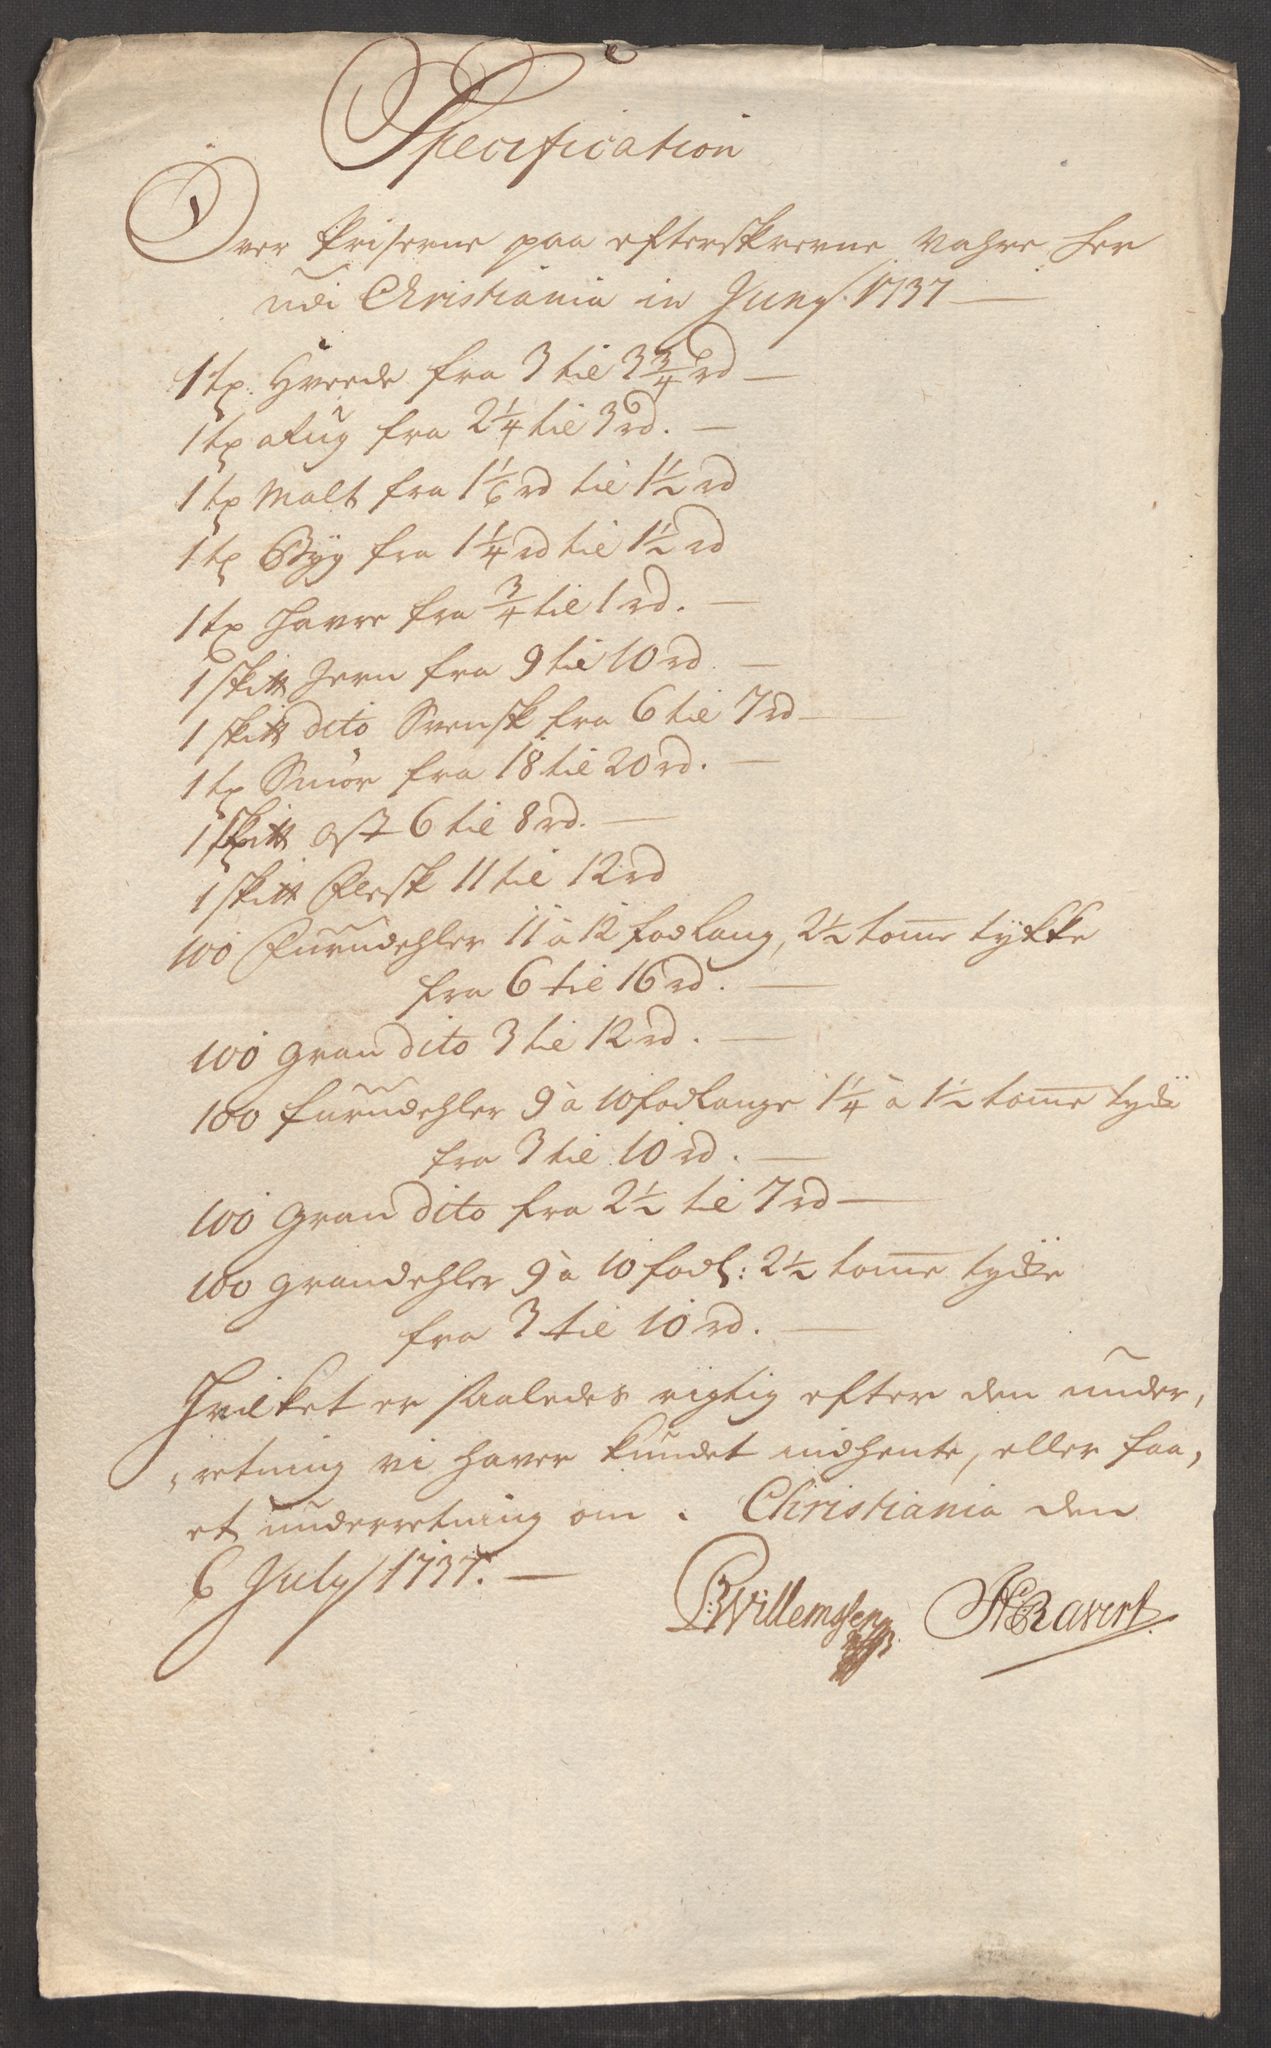 Specification
Over Priserne paa efterskrevne Vahre her
udi Christiania in Juny 1737
1 tø: Hvede fra 3 til 3 3/4 rd
1 tø Rug fra 2 1/4 til 3 rd.
1 tø Malt fra 1 1/6 rd til 1 1/2 rd
1 tø Byg fra 1 1/4 rd til 1 1/2 rd
1 tø Havre fra 3/4 til 1 rd.
1 Skitt Jern fra 9 til 10 rd
1 skitt dito Svensk fra 6 til 7 rd
1 tø Smør fra 18 til 20 rd.
1 skitt Ost 6 til 8 rd.
1 skitt Flesk 11 til 12 rd
100 Furudehler 11 a 12 fod lang, 2 1/2 tome tykke
fra 6 til 16 rd.
100 Gran dito 3 til 12 rd.
100 furudehler 9 a 10 fod lange 1 1/4 a 1 1/2 tome
fra 3 til 10 rd.
100 Gran dito fra 2 1/2 til 7 rd
100 grandehler 9 a 10 fodl: 2 1/2 tome tycke
fra 3 til 10 rd.
Hvilket er saaledes rigtig efter den under,
,retning vi haver kundet indhente, eller faa,
et underretning om. Christiania den
6 July 1737.
Willemssen Ravert